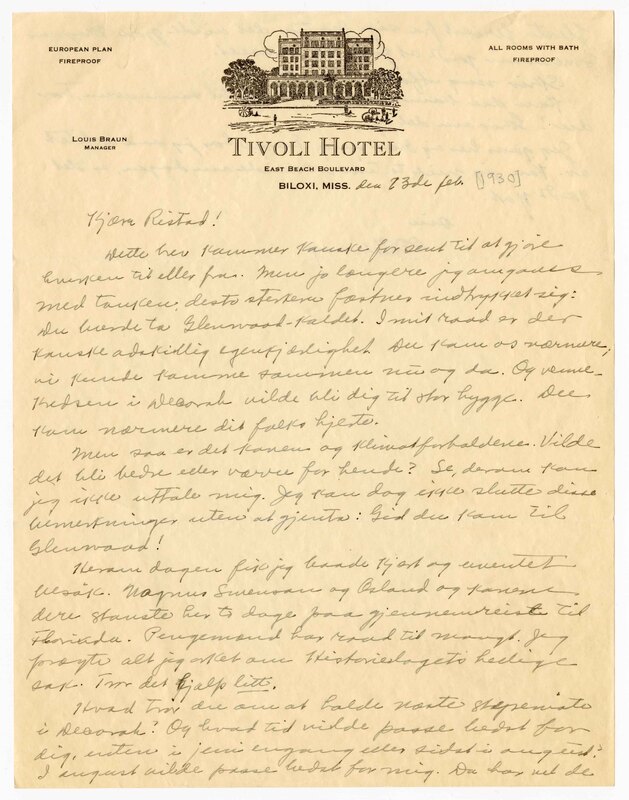 EUROPEAN PLAN
FIREPROOF
ALL ROOMS WITH BATH
FIREPROOF
LOUIS BRAUN
MANAGER
TIVOLI HOTEL
EAST BEACH BOULEVARD
BILOXI, MISS. den 23de feb. [1930]
Kjære Ristad!
Dette brev kommer kanske for sent til at gjøre
hverken til eller fra. Men jo længere jeg omgaaes
med tanken, desto sterkere fæstner indtrykket sig:
Du burde ta Glenwood-kaldet. I mit raad er der
kanske adskidlig egenkjærlighet. Du kom os nærmere,
vi kunde komme sammen nu og da. Og venne-
kredsen i Decorah vilde bli dig til stor hygge. Du
kom nærmere dit folks hjerte.
Men saa er det konen og klimatforholdene. Vilde
det bli bedre eller værre for hende? Se, derom kan
jeg ikke uttale mig. Jeg kan dog ikke slutte disse
bemerkninger uten at gjenta: Gid du kom til
Glenwood!
Herom dagen fik jeg baade kjært og uventet
besøk. Magnus Swenson og Osland og konene
dere stanste her to dage paa gjennemreise til
Florida. Pengemænd har raad til meget. Jeg
alt jeg orket om Historielagets hellige
sak. Tror det hjalp litt.
Hvad tror du om at holde næste
i Decorah? Og hvad tid vilde passe bedst for
dig, enten i juni engang eller sidst i august?
I august vilde passe bedst for mig. Du har vel de